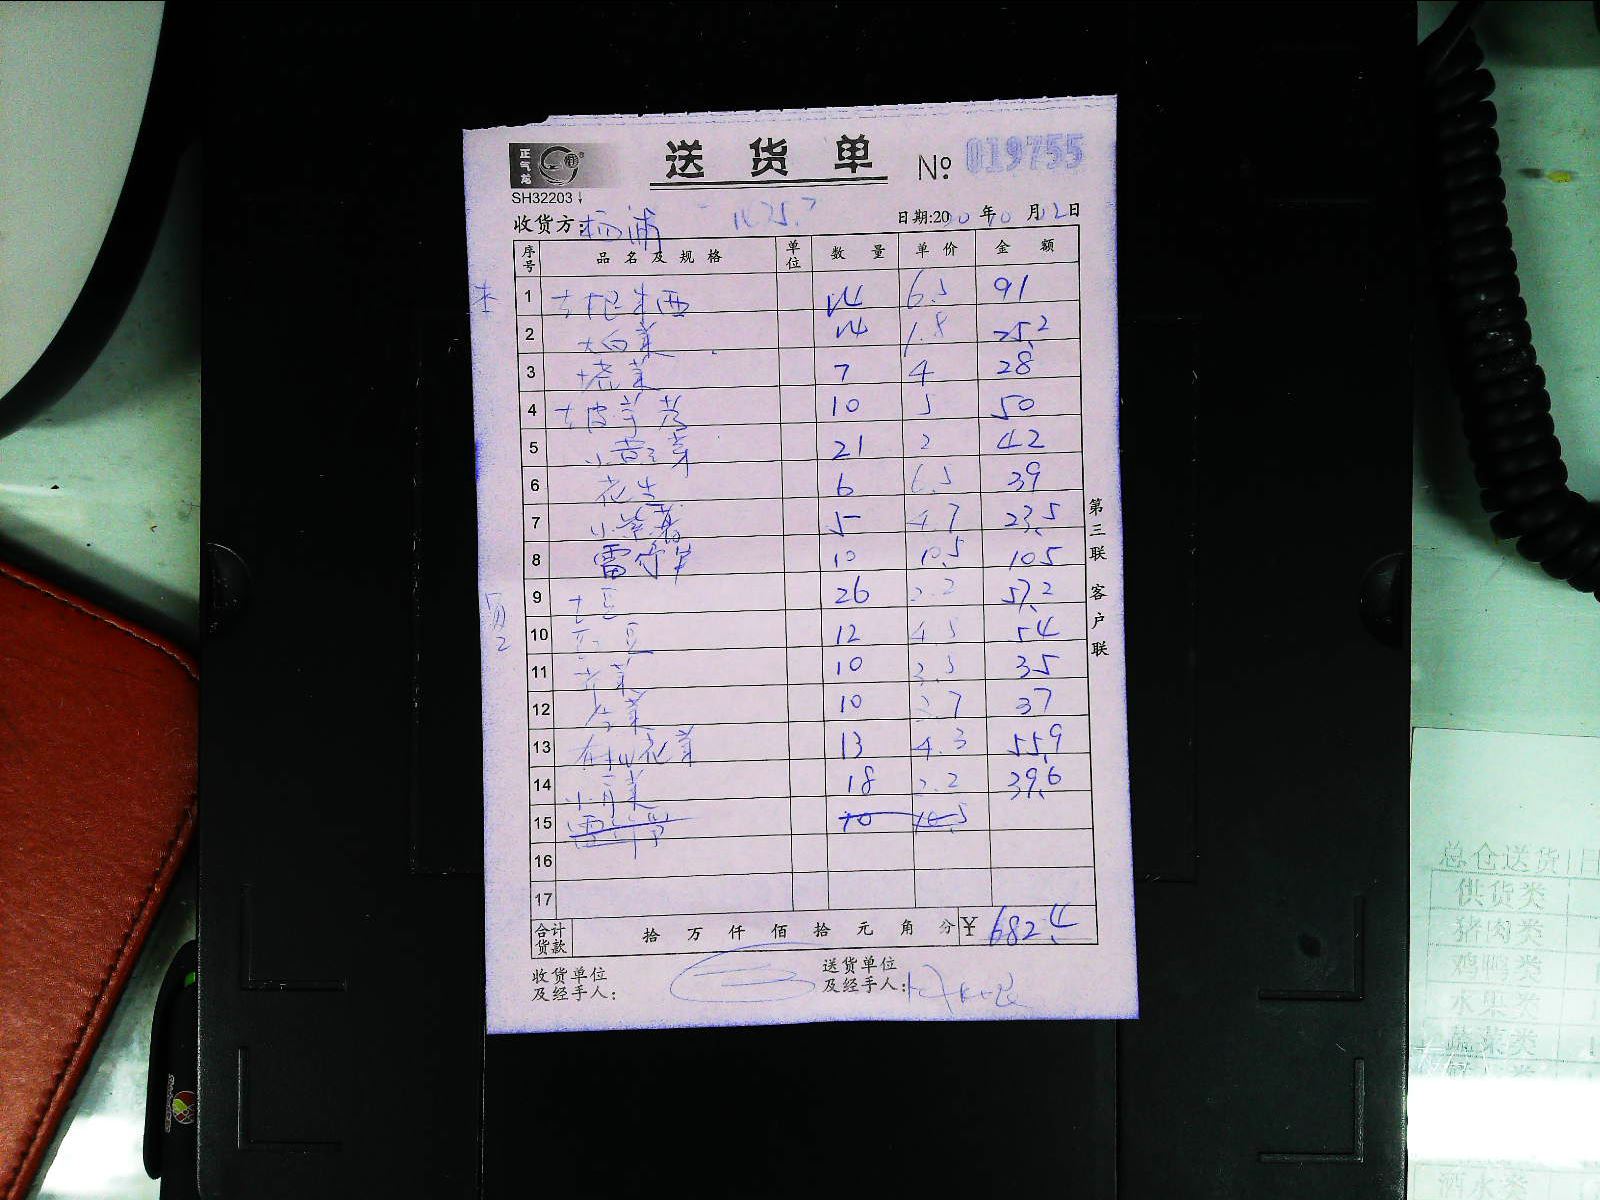 正气龙
送货单 No 019755
SH32203
收货方: 杨浦 日期:20 年 月 日
序号 品名及规格 单位 数量 单价 金额
1 14 6.5 91
2 大白菜 14 1.8 25.2
3 7 4 28
4 10 5 50
5 小黄菜 21 2 42
6 花生 6 6.5 39
7 小紫薯 5 4.7 23.5
8 10 10.5 105
9 土豆 26 2.2 57.2
10 豆 12 4.5 54
11 菜 10 3.5 35
12 菜 10 3.7 37
13 有机花菜 13 4.3 55.9
14 小青菜 18 2.2 39.6
15
16
17
合计货款 拾 万 仟 佰 拾 元 角 分 ¥ 682.4
收货单位及经手人:
送货单位及经手人:
第三联 客户联
总仓送货 日
供货类
猪肉类
鸡鸭类
水果类
蔬菜类
酒水类